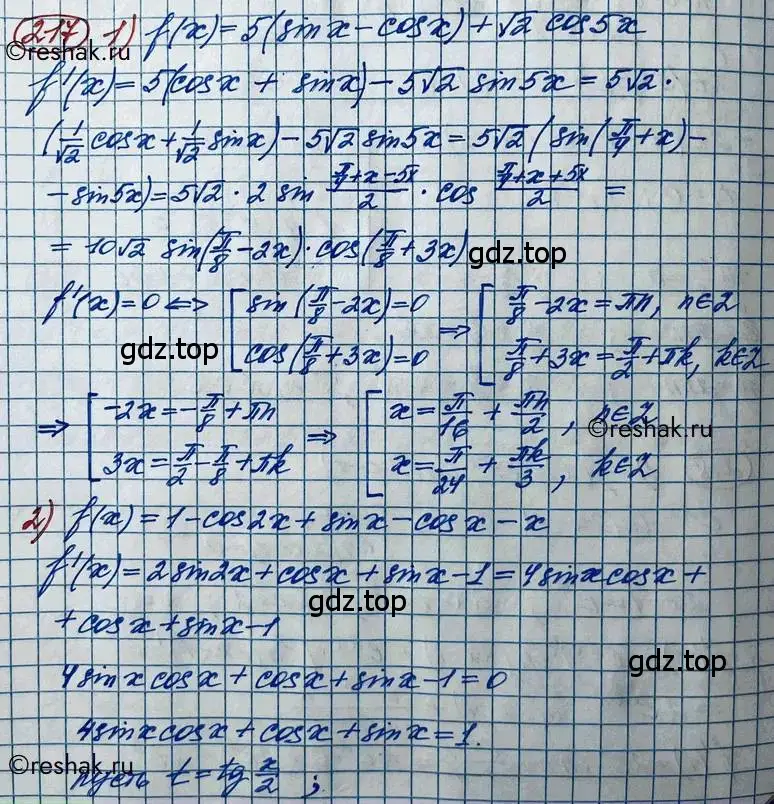 217 1) f(x)=5(sinx-cosx)+√2 cos5x
©reshak.ru
f'(x)=5(cosx + sinx)-5√2 sin5x=5√2·
(1/√2 cosx+1/√2 sinx)-5√2 sin5x=5√2(sin(π/4+x)-
-sin5x)=5√2·2 sin (π/4+x-5x)/2 · cos (π/4+x+5x)/2 =
=10√2 sin(π/8-2x)·cos(π/8+3x)
gdz.top
f'(x)=0 <=> [ sin(π/8-2x)=0 => [ π/8-2x=πn, n∈Z
gdz.top
cos(π/8+3x)=0 π/8+3x=π/2+πk, k∈Z
=> [ -2x=-π/8+πn => [ x=π/16+πn/2, n∈Z
©reshak.ru
3x=π/2-π/8+πk x=π/24+πk/3, k∈Z
2) f(x)=1-cos2x+sinx-cosx-x
f'(x)=2sin2x+cosx+sinx-1=4sinxcosx+
gdz.top
+cosx+sinx-1
gdz.top
4sinxcosx+cosx+sinx-1=0
4sinxcosx+cosx+sinx=1.
©reshak.ru
пусть t=tg x/2 ;